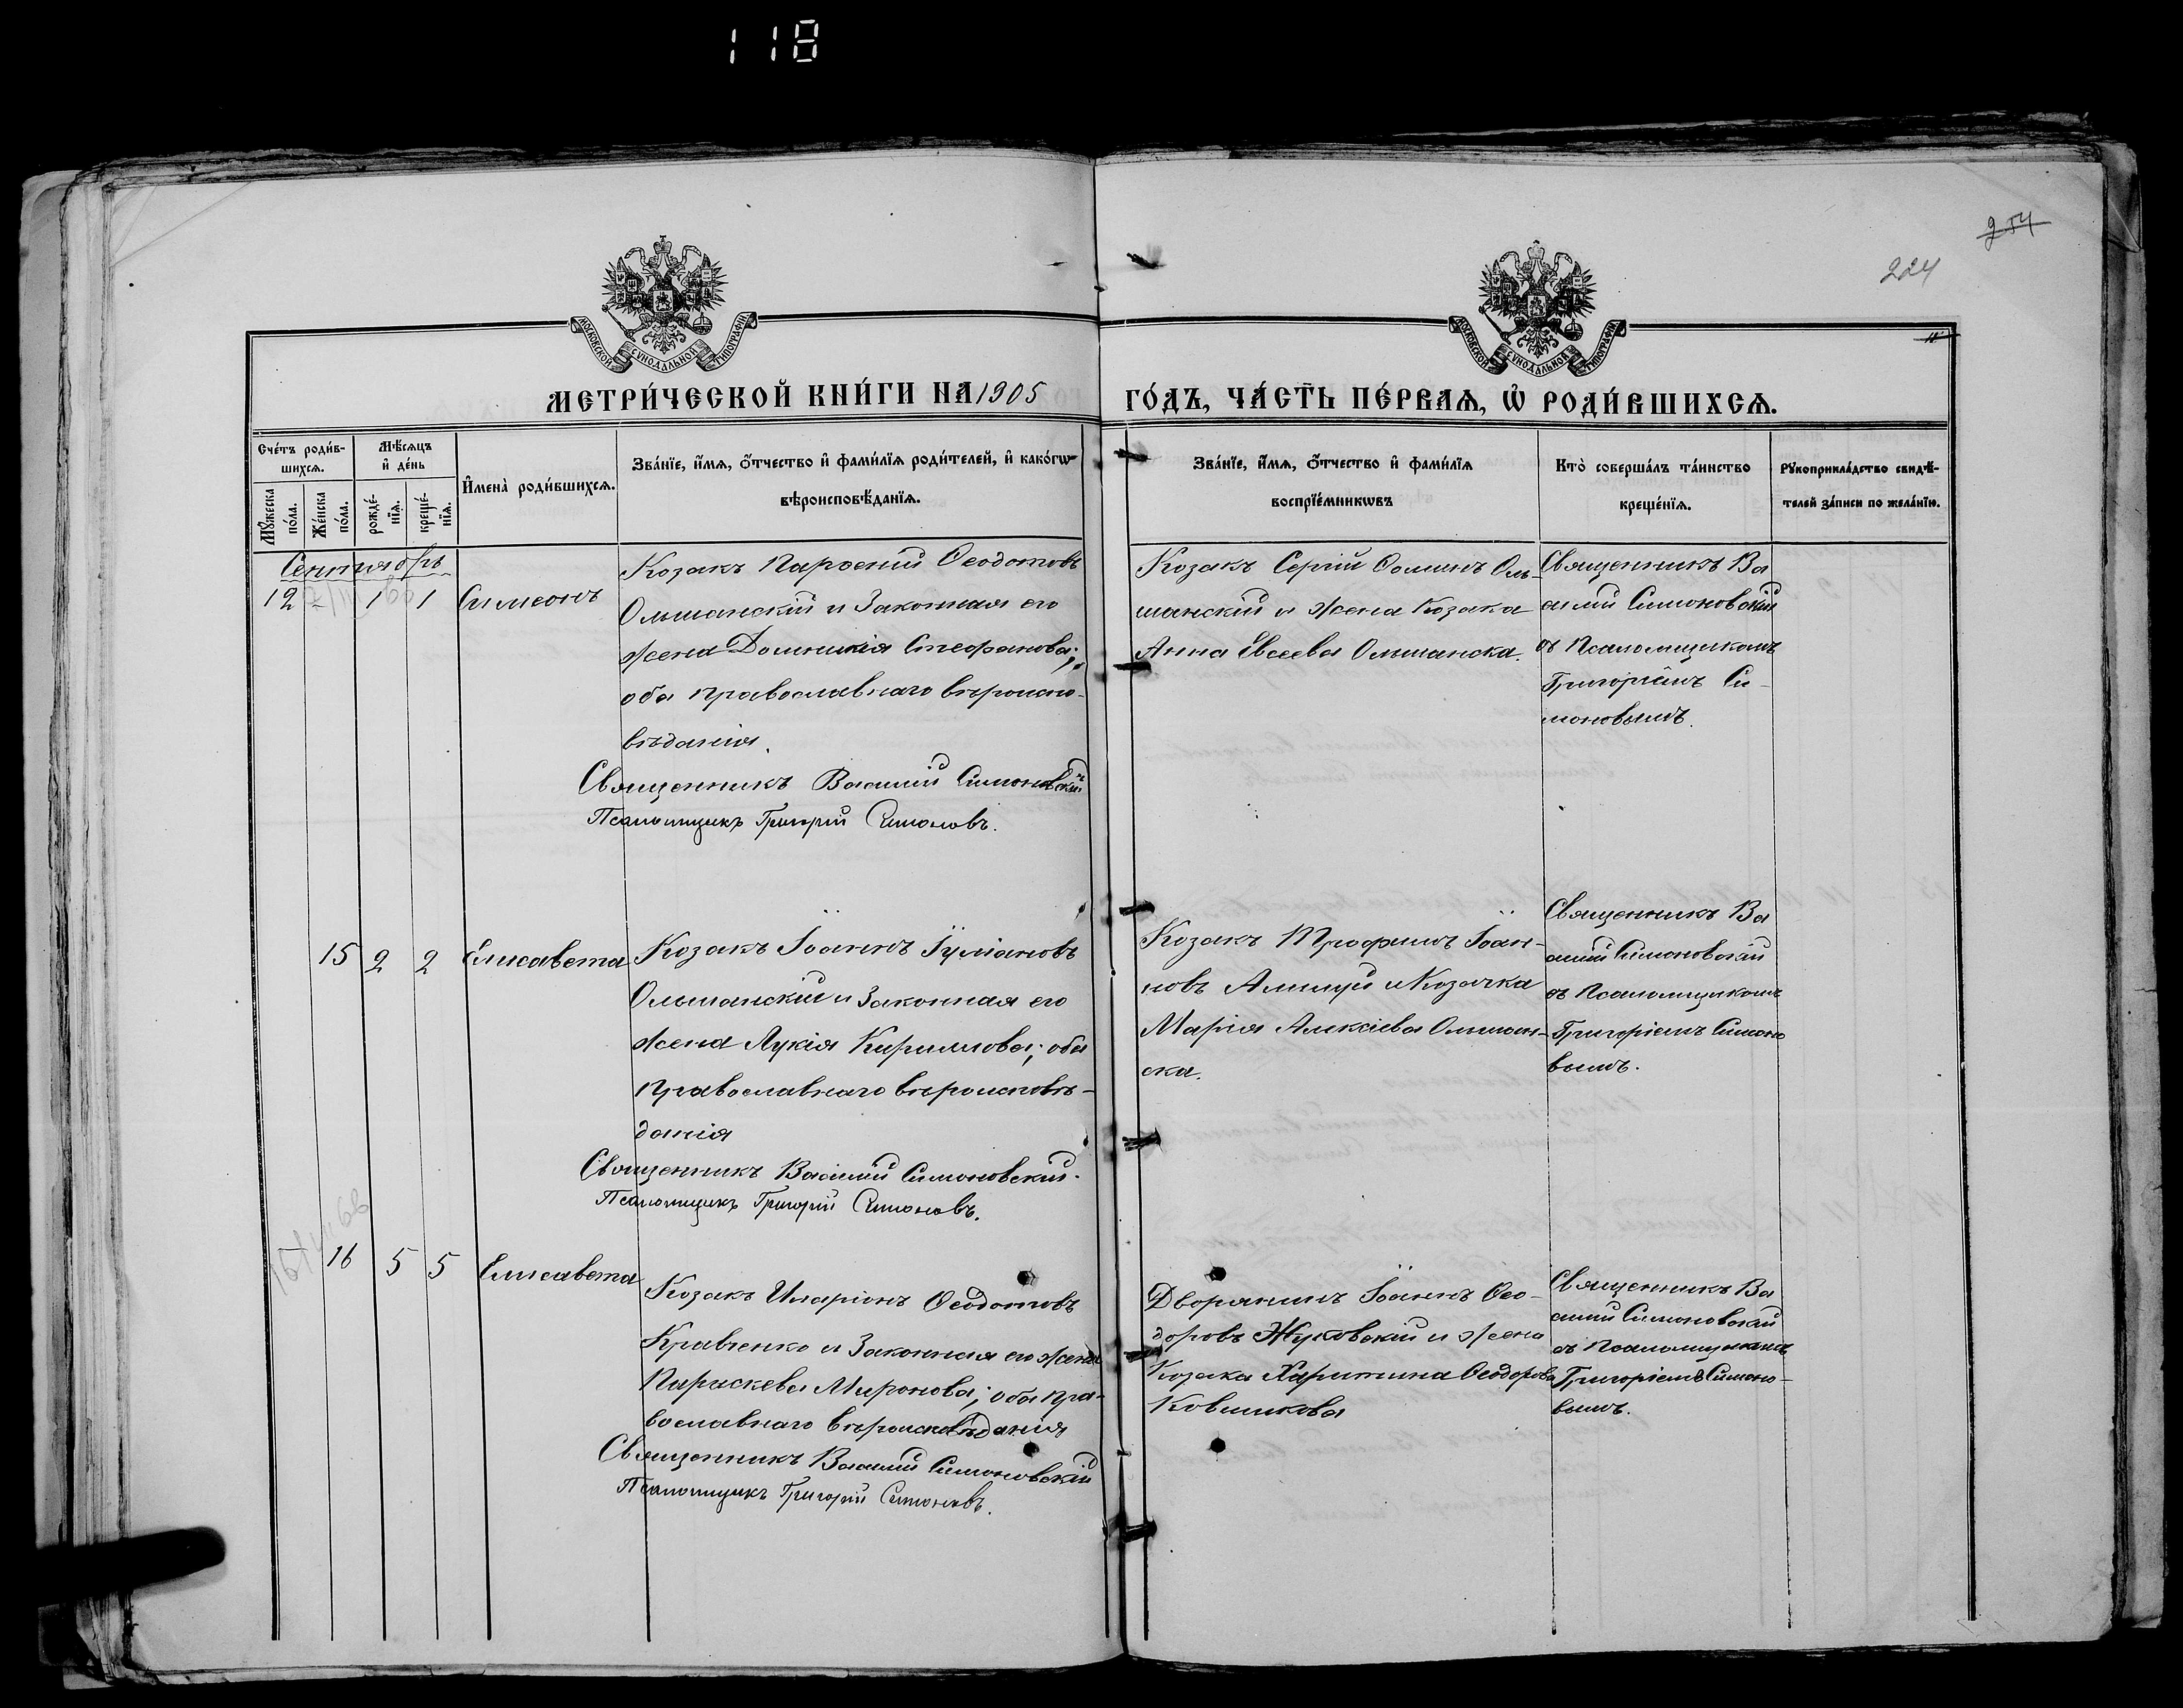 118
254
224
МОСКОВСКОЙ СѴНОДАЛЬНОЙ ТИПОГРАФІИ
МОСКОВСКОЙ СѴНОДАЛЬНОЙ ТИПОГРАФІИ
МЕТРИ́ЧЕСКОЙ КНИ́ГИ НА 1905 ГО́ДЪ, ЧА́СТЬ ПЕ́РВАЯ, Ѡ РОДИ́ВШИХСЯ.
Сче́тъ роди́в-
шихся.
Мѣ́сяцъ
и де́нь
Му́жеска
по́ла.
Же́нска
по́ла.
рожде́-
нїя.
креще́-
нїя.
Имена̀ роди́вшихся.
Зва́нїе, и́мя, о́тчество и фами́лїя роди́телей, и како́гѡ
вѣроисповѣ́данїя.
Зва́нїе, и́мя, о́тчество и фами́лїя
воспрїе́мникѡвъ
Кто̀ соверша́лъ та́инство
креще́нїя.
Рукоприкла́дство свидѣ́-
телей за́писи по жела́нїю.
Сентябрь
12 - 1 1 Симеонъ
Козакъ Парѳеній Ѳеодотовъ
Ольшанскій и Законная его
жена Домникія Стефанова;
оба православнаго вѣроиспо-
вѣданія.
Священникъ Василій Симоновскій
Псаломщикъ Григорій Симоновъ.
Козакъ Сергій Ѳоминъ Оль-
шанскій и жена Козака
Анна Евсеева Ольшанска.
Священникъ Ва
силій Симоновскій
съ Псаломщикомъ
Григоріемъ Си-
моновымъ.
15 2 2 Елисавета
Козакъ Іоаннъ Іуліановъ
Ольшанскій и Законная его
жена Лукія Кириллова; оба
православнаго вѣроисповѣ-
данія
Священникъ Василій Симоновскій.
Псаломщикъ Григорій Симоновъ.
Козакъ Трофимъ Іоан-
новъ и Козачка
Марія Алексіева Ольшан-
ска.
Священникъ Ва
силій Симоновскій
съ Псаломщикомъ
Григоріемъ Симоно
вымъ.
16 5 5 Елисавета
Козакъ Иларіонъ Ѳеодотовъ
Кравченко и Законная его жена
Параскева Миронова; оба пра-
вославнаго вѣроисповѣданія
Священникъ Василій Симоновскій
Псаломщикъ Григорій Симоновъ.
Дворянинъ Іоаннъ Ѳео-
доровъ Жуковскій и жена
Козака Харитина Ѳеодорова
Ковшикова
Священникъ Ва
силій Симоновскій
съ Псаломщикомъ
Григоріемъ Симоно-
вымъ.